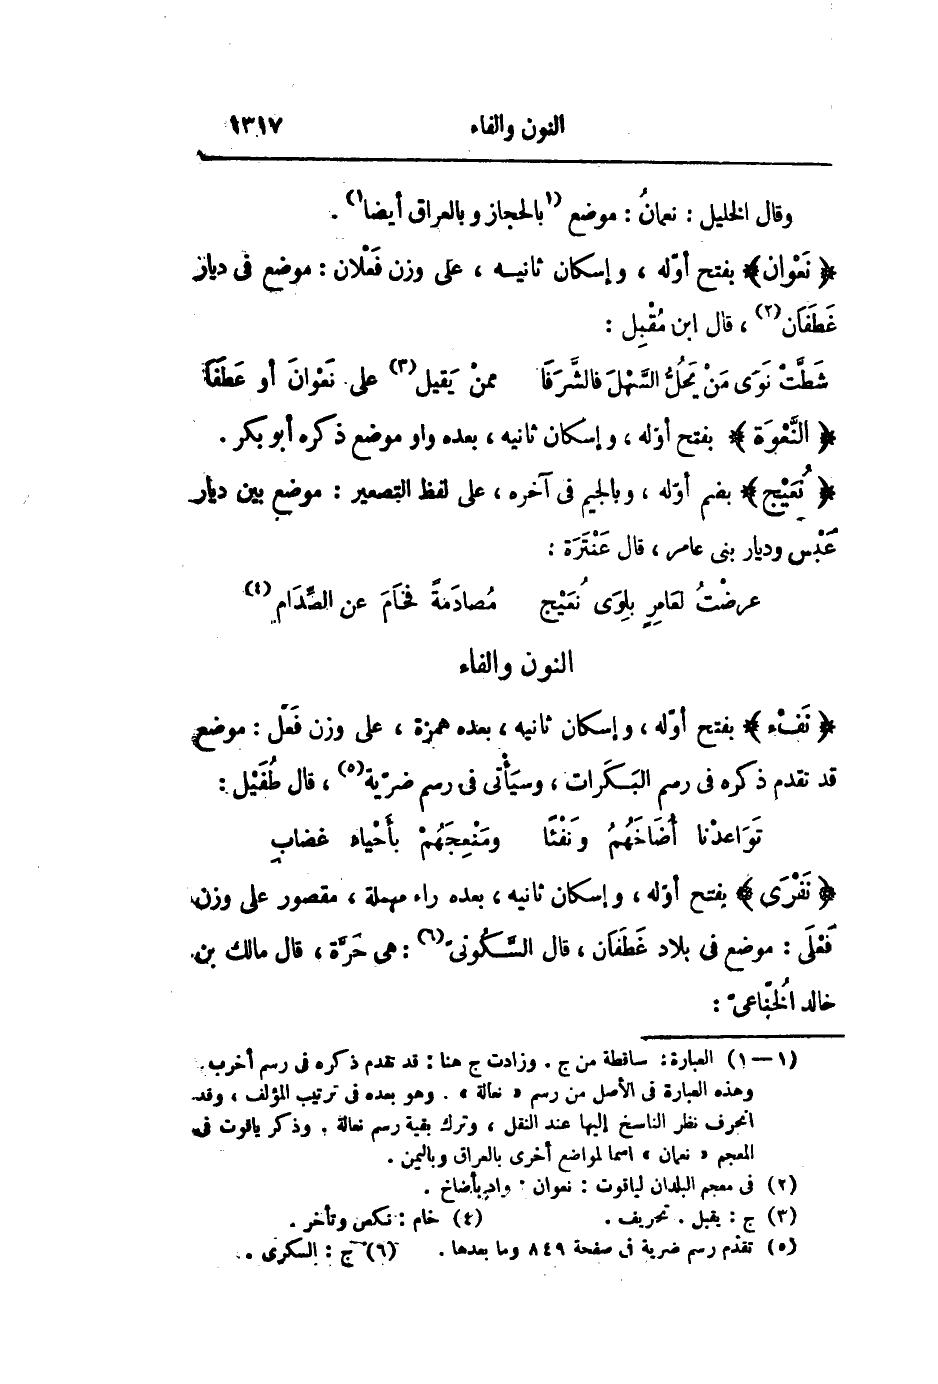 النون والفاء ١٣١٧
وقال الخليل : نعمانُ : موضع (١ بالحجاز وبالعراق أيضا ١) .
﴿ نَعْوان ﴾ بفتح أوّله ، وإسكان ثانيه ، على وزن فَعْلان : موضع فى ديار
غَطَفَان (٢) ، قال ابن مُقْبِل :
شَطَّتْ نَوَى مَنْ يَحُلُّ السَّهْلَ فالشَّرَفَا ممنْ يَقيل (٣) على نَعْوانَ أو عَطَفَا
﴿ النَّعْوَة ﴾ بفتح أوّله ، وإسكان ثانيه ، بعده واو موضع ذكره أبو بكر .
﴿ نُعَيْج ﴾ بضم أوّله ، وبالجيم فى آخره ، على لفظ التصعير : موضع بين ديار
عَبْس وديار بنى عامر ، قال عَنْتَرَة :
عرضْتُ لعَامرٍ بلِوَى نُعَيْج مُصادَمةً فَخَامَ عن الصِّدَام (٤)
النون والفاء
﴿ نَفْء ﴾ بفتح أوّله ، وإسكان ثانيه ، بعده همزة ، على وزن فَعْل : موضع
قد تقدم ذكره فى رسم البَكَرات ، وسيَأْتى فى رسم ضريّة (٥) ، قال طُفَيْل :
تَوَاعدْنا أُضَاخَهُمُ ونَفْئًا ومَنْعِجَهُمْ بأَحْياء غضاب
﴿ نَفْرَى ﴾ بفتح أوّله ، وإسكان ثانيه ، بعده راء مهملة ، مقصور على وزن
فَعْلَى : موضع فى بلاد غَطَفَان ، قال السَّكُونىّ (٦) : هى حَرَّة ، قال مالك بن
خالد الخُنَاعىّ :
(١ — ١) العبارة : ساقطة من ج . وزادت ج هنا : قد تقدم ذكره فى رسم أخرب .
وهذه العبارة فى الأصل من رسم « نعالة » . وهو بعده فى ترتيب المؤلف ، وقد
انحرف نظر الناسخ إليها عند النقل ، وترك بقية رسم نعالة . وذكر ياقوت فى
المعجم « نعمان » اسما لمواضع أخرى بالعراق وباليمن .
(٢) فى معجم البلدان لياقوت : نعوان : وادٍ بأضاخ .
(٣) ج : يقبل . تحريف . (٤) خام : نكص وتأخر .
(٥) تقدّم رسم ضرية فى صفحة ٨٤٩ وما بعدها . (٦) ج : السكرى .